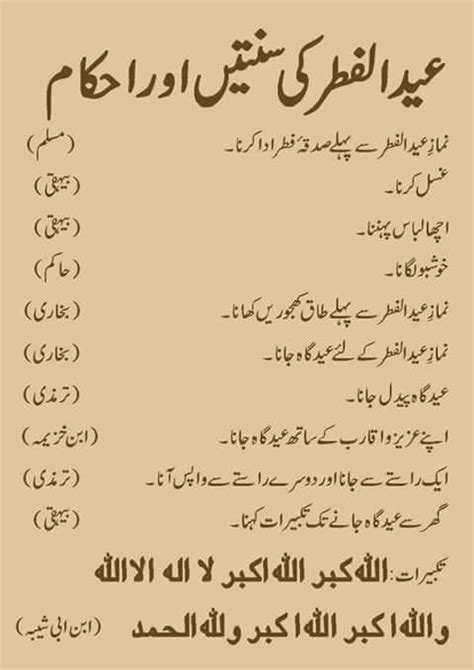 عیدالفطر کی سنتیں اور احکام
نمازِ عیدالفطر سے پہلے صدقۂ فطر ادا کرنا۔ (مسلم)
غسل کرنا۔ (بیہقی)
اچھا لباس پہننا۔ (بیہقی)
خوشبو لگانا۔ (حاکم)
نمازِ عیدالفطر سے پہلے طاق کھجوریں کھانا۔ (بخاری)
نمازِ عیدالفطر کے لئے عیدگاہ جانا۔ (بخاری)
عیدگاہ پیدل جانا۔ (ترمذی)
اپنے عزیز و اقارب کے ساتھ عیدگاہ جانا۔ (ابن خزیمہ)
ایک راستے سے جانا اور دوسرے راستے سے واپس آنا۔ (ترمذی)
گھر سے عیدگاہ جانے تک تکبیرات کہنا۔ (بیہقی)
تکبیرات: اللہ کبر اللہ اکبر لا الہ الا اللہ
واللہ اکبر اللہ اکبر وللہ الحمد (ابن ابی شیبہ)